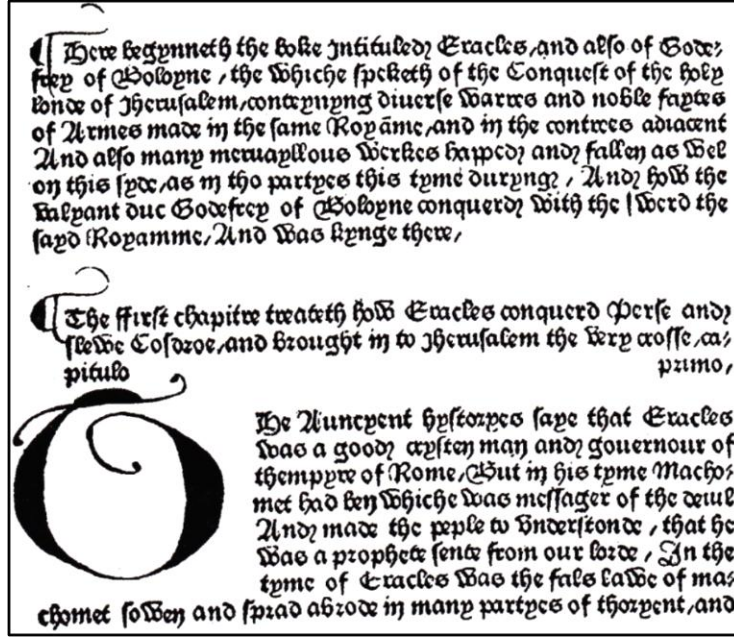 ¶ Here begynneth the boke Intituled Eracles, and also of Gode⸗
frey of Boloyne, the whiche speketh of the Conquest of the holy
londe of Jherusalem, conteynyng diuerse warres and noble faytes
of Armes made in the same Royāme, and in the contrees adiacent
And also many meruayllous werkes happed and fallen as wel
on this syde, as in tho partyes this tyme duryng, And how the
valyant duc Godefrey of Boloyne conquerd with the swerd the
sayd Royamme, And was kynge there,
¶ The ffirst chapitre treateth how Eracles conquerd Perse and
slewe Cosdroe, and brought in to Jherusalem the very crosse, ca⸗
pitulo primo,
THe Auncyent hystoryes saye that Eracles
was a good crysten man and gouernour of
thempyre of Rome, But in his tyme Macho⸗
met had ben whiche was messager of the deuil
And made the peple to vnderstonde, that he
was a prophete sente from our lorde, In the
tyme of Eracles was the fals lawe of ma⸗
chomet sowen and sprad abrode in many partyes of thoryent, and